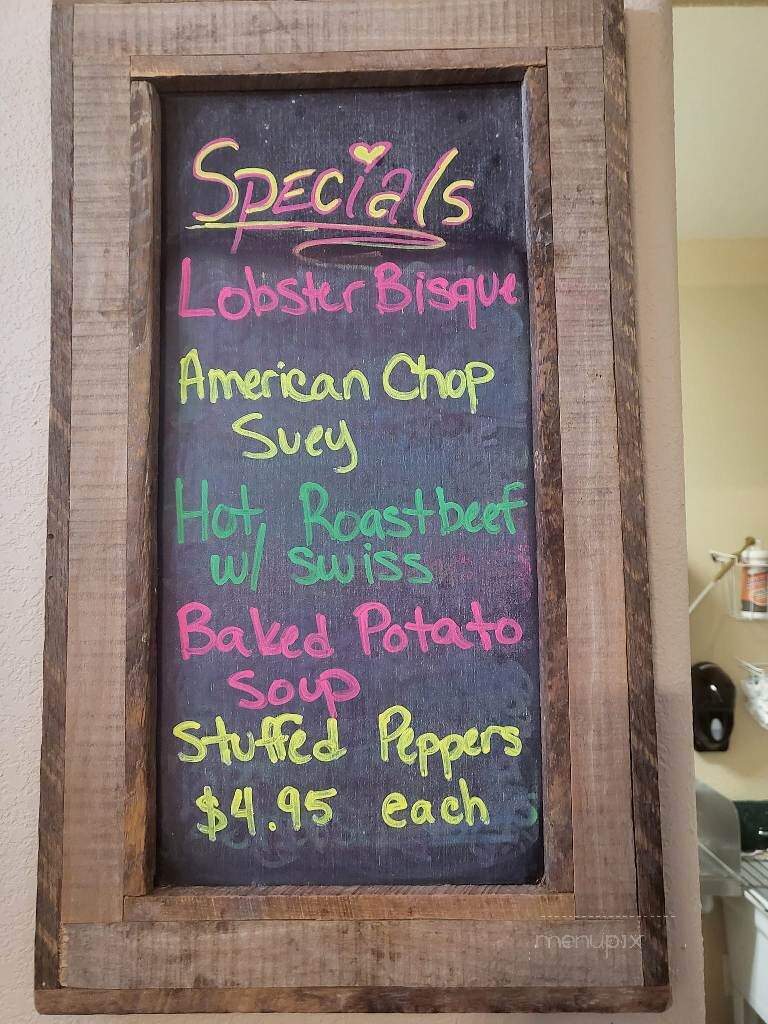 Specials
Lobster Bisque
American Chop
Suey
Hot Roastbeef
w/ Swiss
Baked Potato
Soup
Stuffed Peppers
$4.95 each
menupix